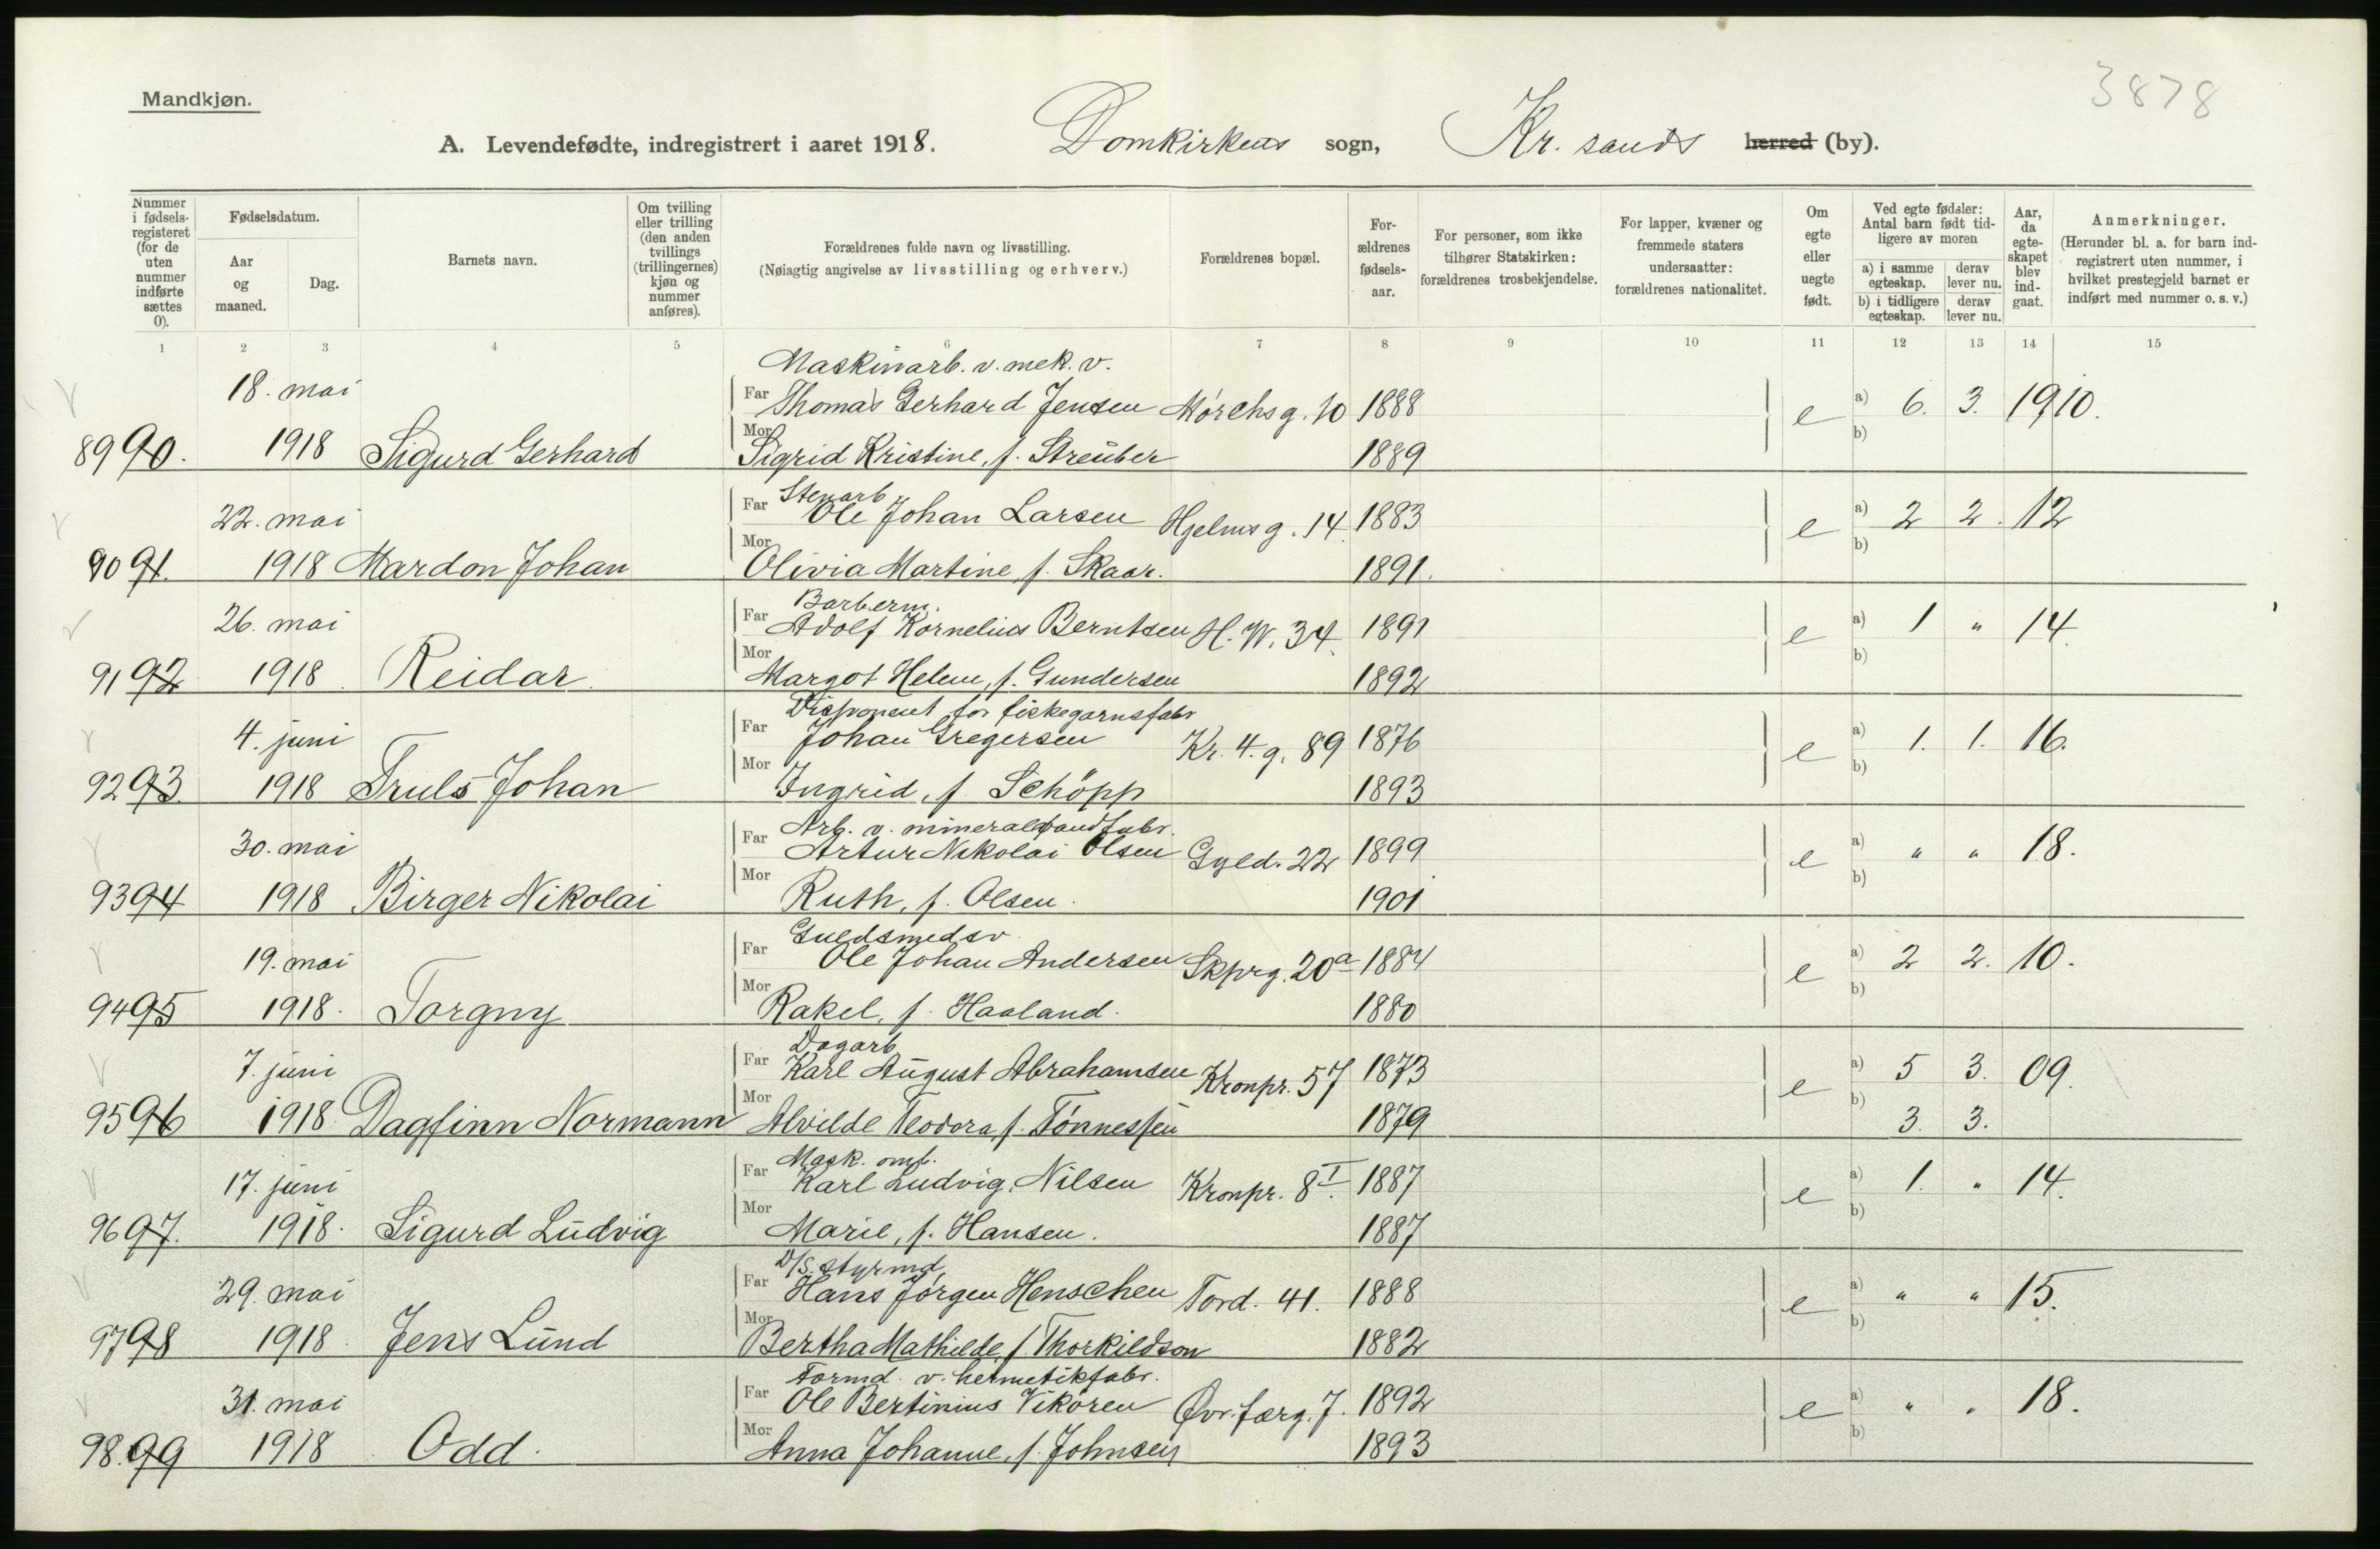 3878
Mandkjøn.
A. Levendefødte, indregistrert i aaret 1918. Domkirkens sogn, Kr.sands herred (by).
Nummer i fødsels-registeret (for de uten nummer indførte sættes 0).
Fødselsdatum.
Aar og maaned.
Dag.
Barnets navn.
Om tvilling eller trilling (den anden tvillings (trillingernes) kjøn og nummer anføres).
Forældrenes fulde navn og livsstilling.
(Nøiagtig angivelse av livsstilling og erhverv.)
Forældrenes bopæl.
For-ældrenes fødsels-aar.
For personer, som ikke tilhører Statskirken: forældrenes trosbekjendelse.
For lapper, kvæner og fremmede staters undersaatter: forældrenes nationalitet.
Om egte eller uegte født.
Ved egte fødsler: Antal barn født tid-ligere av moren
a) i samme egteskap. derav lever nu.
b) i tidligere egteskap. derav lever nu.
Aar, da egte-skapet blev ind-gaat.
Anmerkninger.
(Herunder bl. a. for barn ind-registrert uten nummer, i hvilket prestegjeld barnet er indført med nummer o. s. v.)
1 2 3 4 5 6 7 8 9 10 11 12 13 14 15
Maskinarb. v. mek. v.
18. mai Far Thomas Gerhard Jensen Mørchsg. 10 1888 e a) 6. 3. 1910.
8990. 1918 Sigurd Gerhard Mor Sigrid Kristine, f. Streüber 1889 b)
Stenarb
22. mai Far Ole Johan Larsen Hjelmsg. 14. 1883 e a) 2 2. 12
9091. 1918 Mardon Johan Mor Olivia Martine, f. Skaar. 1891. b)
Barberm.
26. mai Far Adolf Kornelius Berntsen H. W. 34. 1891 e a) 1 " 14.
9192 1918. Reidar. Mor Margot Helene, f. Gundersen 1892 b)
Disponent for fiskegarnsfabr
4. juni Far Johan Gregersen Kr. 4. g. 89 1876 e a) 1. 1. 16.
9293. 1918 Truls Johan Mor Ingrid, f Schöpp 1893 b)
Arb. v. mineralvandfabr.
30. mai Far Artur Nikolai Olsen Gyld. 22 1899 e a) " " 18.
9394 1918 Birger Nikolai Mor Ruth, f. Olsen. 1901 b)
Guldsmedsv.
19. mai Far Ole Johan Andersen Skprg. 20a 1884 e a) 2 2. 10.
9495 1918. Torgny Mor Rakel, f. Haaland. 1880 b)
Dagarb
7. juni Far Karl August Abrahamsen Kronpr. 57 1873 e a) 5 3. 09.
9596 1918 Dagfinn Normann Mor Alvilde Teodora, f. Tønnessen 1879 b) 3. 3.
Mask. omb.
17. juni Far Karl Ludvig Nilsen Kronpr. 8 I. 1887 e a) 1. " 14.
9697. 1918. Sigurd Lüdvig Mor Marie, f. Hansen. 1887 b)
D/S. styrmd.
29. mai Far Hans Jørgen Henschen Tord. 41. 1888 e a) " " 15.
9798 1918. Jens Lünd Mor Bertha Mathilde, f. Thorkildson 1882 b)
Formd. v. hermetikfabr.
31. mai Far Ole Bertinius Vikøren Øvr. færg. 7. 1892 e a) " " 18.
98.99 1918 Odd. Mor Anna Johanne, f. Johnsen 1893 b)